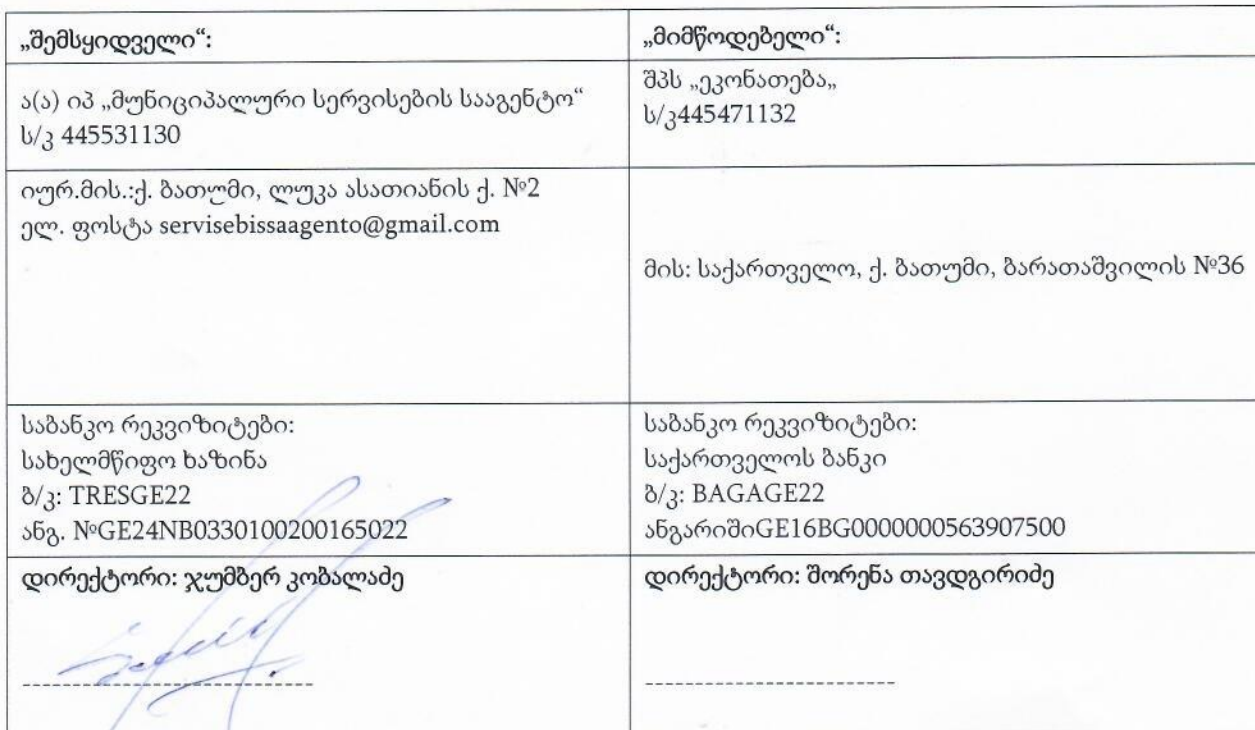 „შემსყიდველი“:
„მიმწოდებელი“:
ა(ა) იპ „მუნიციპალური სერვისების სააგენტო“
ს/კ 445531130
შპს „ეკონათება„
ს/კ445471132
იურ.მის.:ქ. ბათუმი, ლუკა ასათიანის ქ. №2
ელ. ფოსტა servisebissaagento@gmail.com
მის: საქართველო, ქ. ბათუმი, ბარათაშვილის №36
საბანკო რეკვიზიტები:
სახელმწიფო ხაზინა
ბ/კ: TRESGE22
ანგ. №GE24NB0330100200165022
საბანკო რეკვიზიტები:
საქართველოს ბანკი
ბ/კ: BAGAGE22
ანგარიშიGE16BG0000000563907500
დირექტორი: ჯუმბერ კობალაძე
დირექტორი: შორენა თავდგირიძე